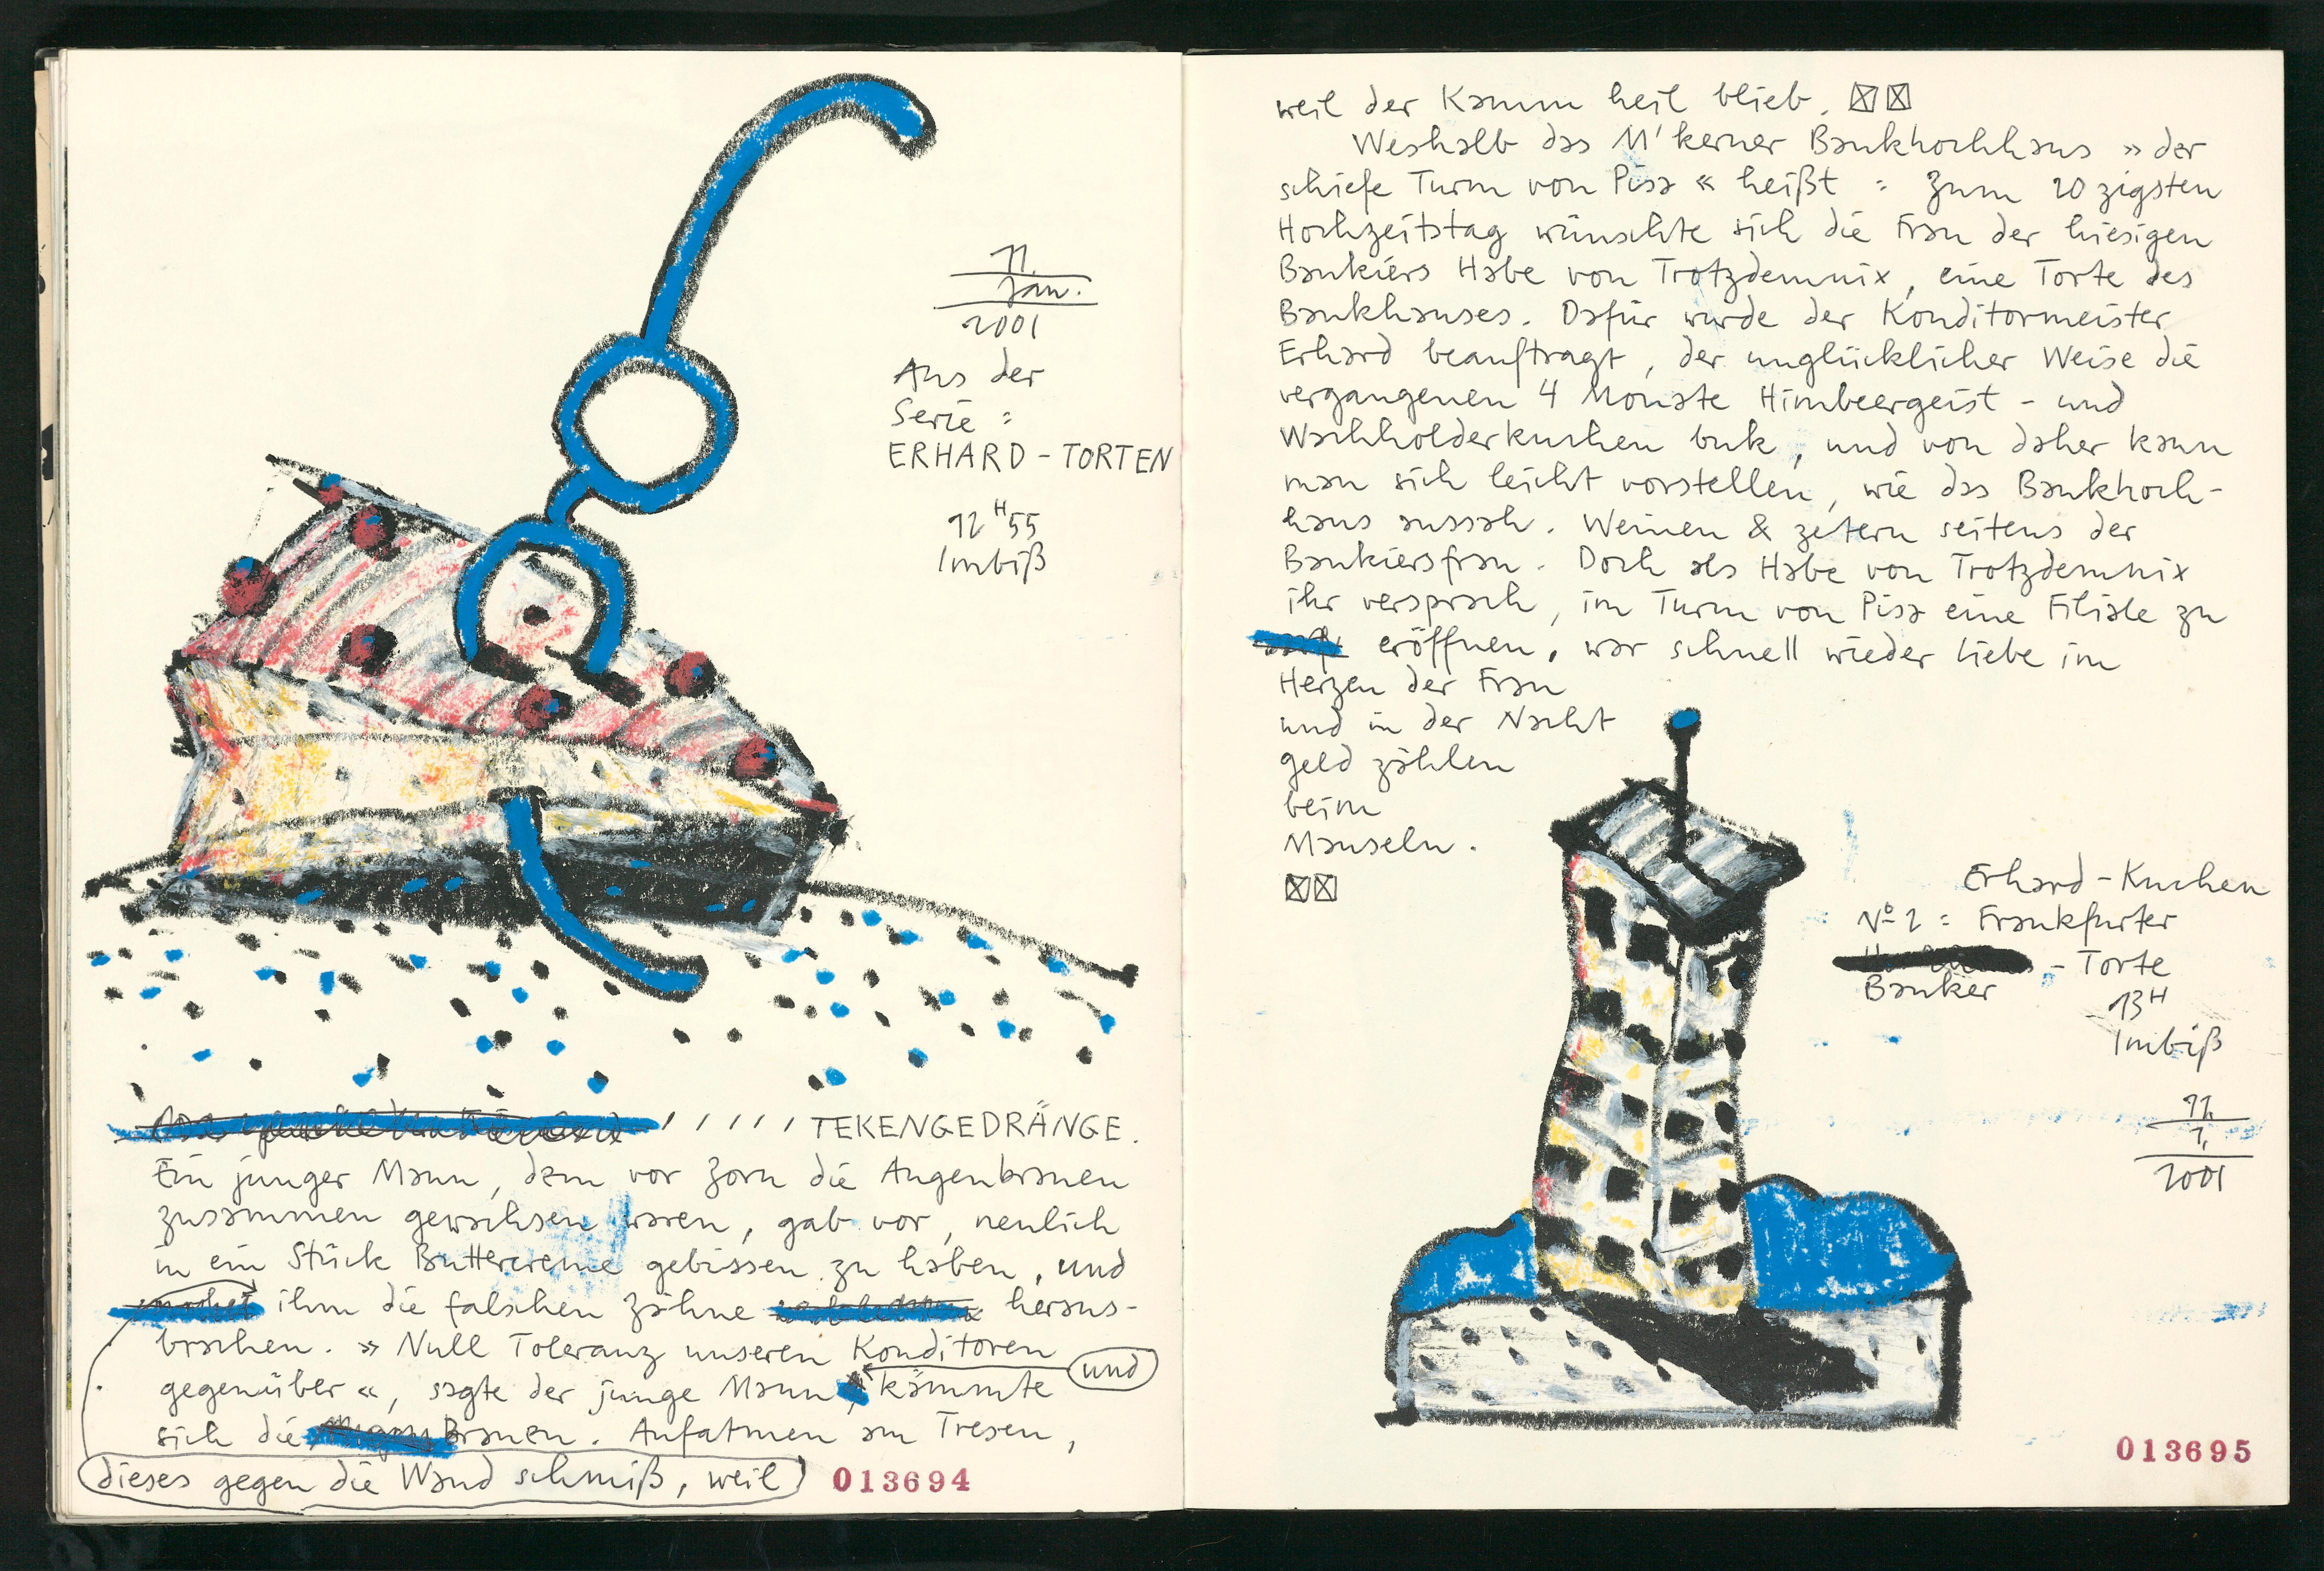 11.
Jan.
2001
Aus der
Serie :
ERHARD - TORTEN
12 H 55
Imbiß
' ' ' ' ' TEKENGEDRÄNGE.
Ein junger Mann, dem vor Zorn die Augenbrauen
zusammen gewachsen waren, gab vor, neulich
in ein Stück Buttercreme gebissen zu haben, und
ihm die falschen Zähne heraus-
brachen. » Null Toleranz unseren Konditoren
gegenüber «, sagte der junge Mann, kämmte
und
sich die Brauen. Aufatmen am Tresen,
dieses gegen die Wand schmiß, weil
013694
weil der Kamm heil blieb. ☒☒
Weshalb das M'kerner Bankhochhaus » der
schiefe Turm von Pisa « heißt : Zum 20 zigsten
Hochzeitstag wünschte sich die Frau der hiesigen
Bankiers Habe von Trotzdemnix, eine Torte des
Bankhauses. Dafür wurde der Konditormeister
Erhard beauftragt, der unglücklicher Weise die
vergangenen 4 Monate Himbeergeist - und
Wachholderkuchen buk, und von daher kann
man sich leicht vorstellen, wie das Bankhoch-
haus aussah. Weinen & zetern seitens der
Bankiersfrau. Doch als Habe von Trotzdemnix
ihr versprach, im Turm von Pisa eine Filiale zu
eröffnen, war schnell wieder Liebe im
Herzen der Frau
und in der Nacht
geld zählen
beim
Mauseln.
☒☒
Erhard - Kuchen
Nº 2 : Frankfurter
- Torte
Banker
13 H
Imbiß
11.
1.
2001
013695